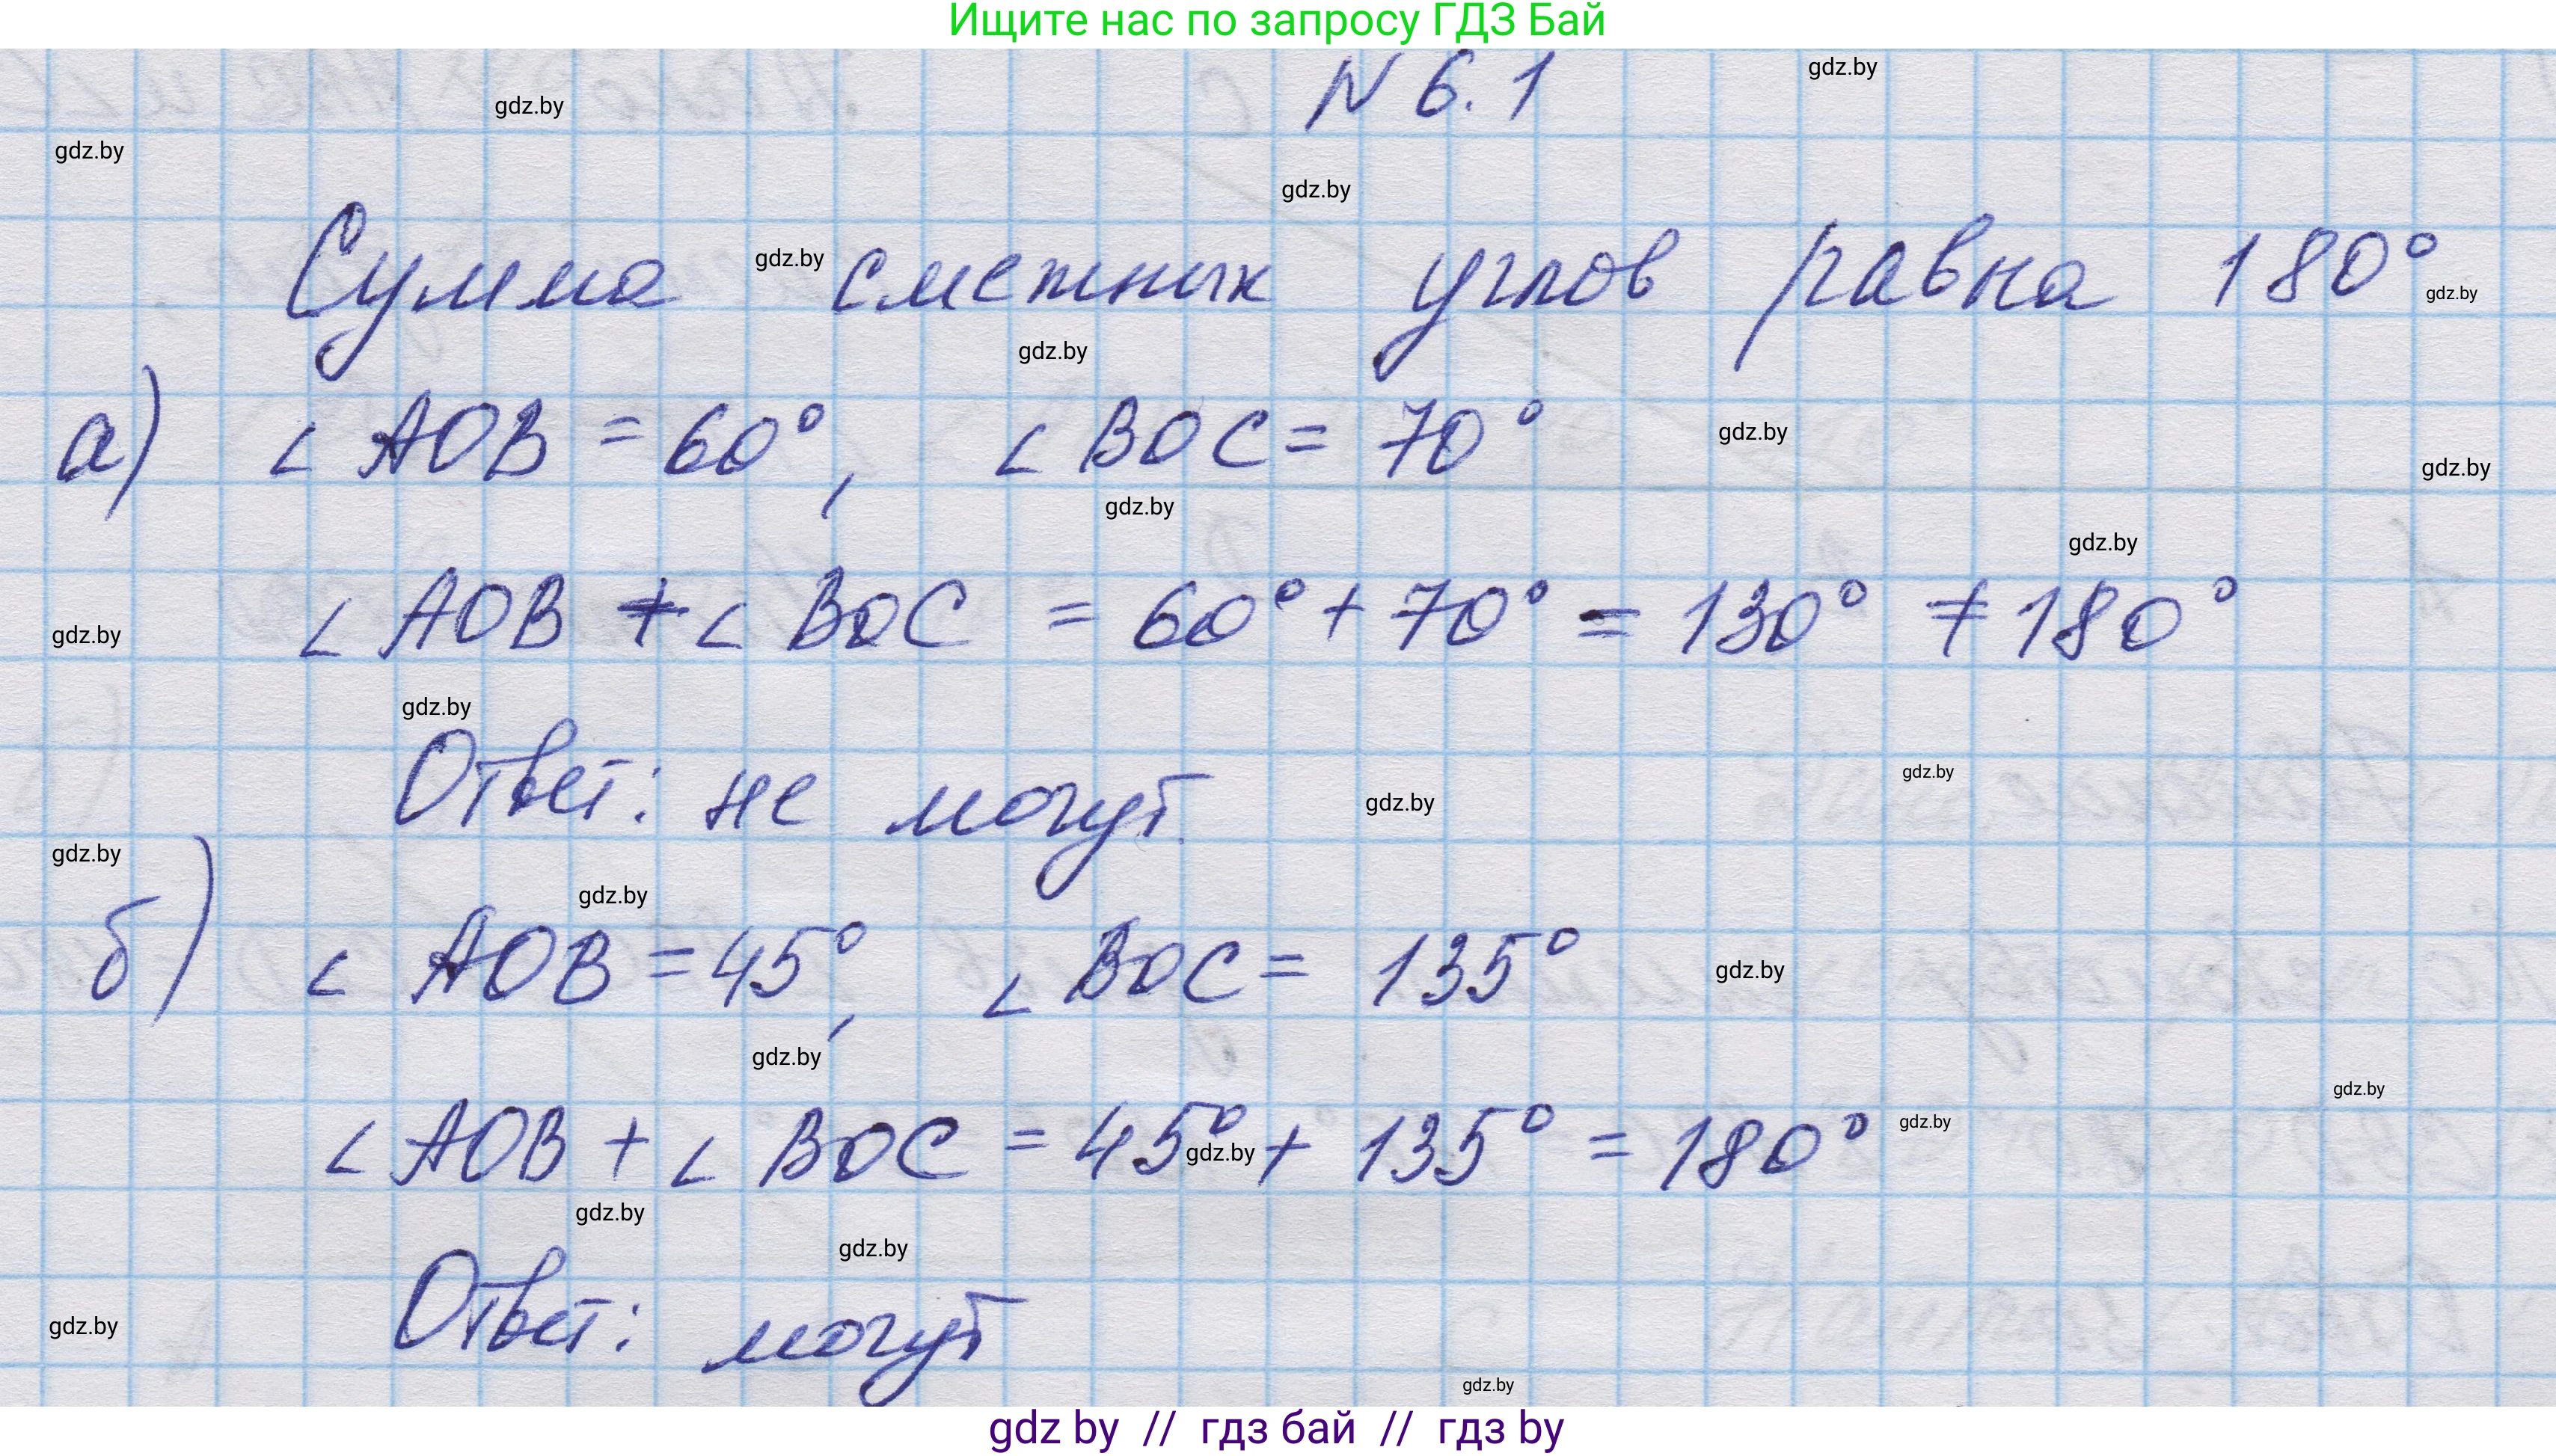 Ищите нас по запросу ГДЗ Бай
N 6.1
gdz.by
gdz.by
gdz.by
gdz.by
Сумма смежных углов равна 180°
gdz.by
gdz.by
gdz.by
а) ∠ AOB = 60°, ∠ BOC = 70°
gdz.by
gdz.by
gdz.by
gdz.by
∠ AOB + ∠ BOC = 60° + 70° = 130° ≠ 180°
gdz.by
gdz.by
Ответ: не могут.
gdz.by
gdz.by
gdz.by
gdz.by
б) ∠ AOB = 45°, ∠ BOC = 135°
gdz.by
gdz.by
gdz.by
∠ AOB + ∠ BOC = 45° + 135° = 180°
gdz.by
gdz.by
gdz.by
gdz.by
Ответ: могут
gdz.by
gdz.by
gdz by // гдз бай // гдз by